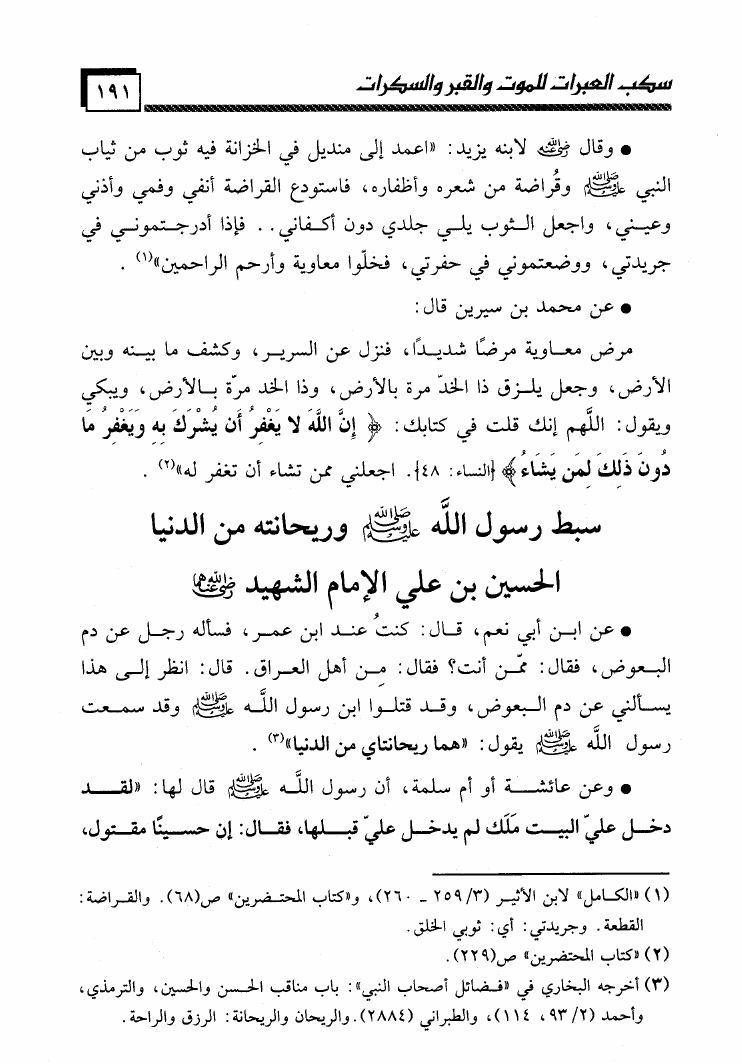 سكب العبرات للموت والقبر والسكرات
١٩١
● وقال رضي الله عنه لابنه يزيد: «اعمد إلى منديل في الخزانة فيه ثوب من ثياب
النبي ﷺ وقُراضة من شعره وأظفاره، فاستودع القراضة أنفي وفمي وأذني
وعيني، واجعل الثوب يلي جلدي دون أكفاني.. فإذا أدرجتموني في
جريدتي، ووضعتموني في حفرتي، فخلّوا معاوية وأرحم الراحمين»(١) .
● عن محمد بن سيرين قال:
مرض معاوية مرضًا شديدًا، فنزل عن السرير، وكشف ما بينه وبين
الأرض، وجعل يلزق ذا الخدّ مرة بالأرض، وذا الخد مرّة بالأرض، ويبكي
ويقول: اللَّهم إنك قلت في كتابك: ﴿ إِنَّ اللَّهَ لا يَغْفِرُ أَن يُشْرَكَ بِهِ وَيَغْفِرُ مَا
دُونَ ذَلِكَ لِمَن يَشَاءُ﴾ [النساء: ٤٨]. اجعلني ممن تشاء أن تغفر له»(٢) .
سبط رسول اللَّه ﷺ وريحانته من الدنيا
الحسين بن علي الإمام الشهيد رضي الله عنهما
● عن ابن أبي نعم، قال: كنتُ عند ابن عمر، فسأله رجل عن دم
البعوض، فقال: ممّن أنت؟ فقال: مِن أهل العراق. قال: انظر إلى هذا
يسألني عن دم البعوض، وقد قتلوا ابن رسول اللَّه ﷺ وقد سمعت
رسول اللَّه ﷺ يقول: «هما ريحانتاي من الدنيا»(٣) .
● وعن عائشة أو أم سلمة، أن رسول اللَّه ﷺ قال لها: «لقد
دخل عليّ البيت مَلَك لم يدخل عليّ قبلها، فقال: إن حسينًا مقتول،
(١) «الكامل» لابن الأثير (٣/ ٢٥٩ ـ ٢٦٠)، و«كتاب المحتضرين» ص(٦٨). والقراضة:
القطعة. وجريدتي: أي: ثوبي الخلق.
(٢) «كتاب المحتضرين» ص(٢٢٩).
(٣) أخرجه البخاري في «فضائل أصحاب النبي»: باب مناقب الحسن والحسين، والترمذي،
وأحمد (٢/ ٩٣، ١١٤)، والطبراني (٢٨٨٤).والريحان والريحانة: الرزق والراحة.